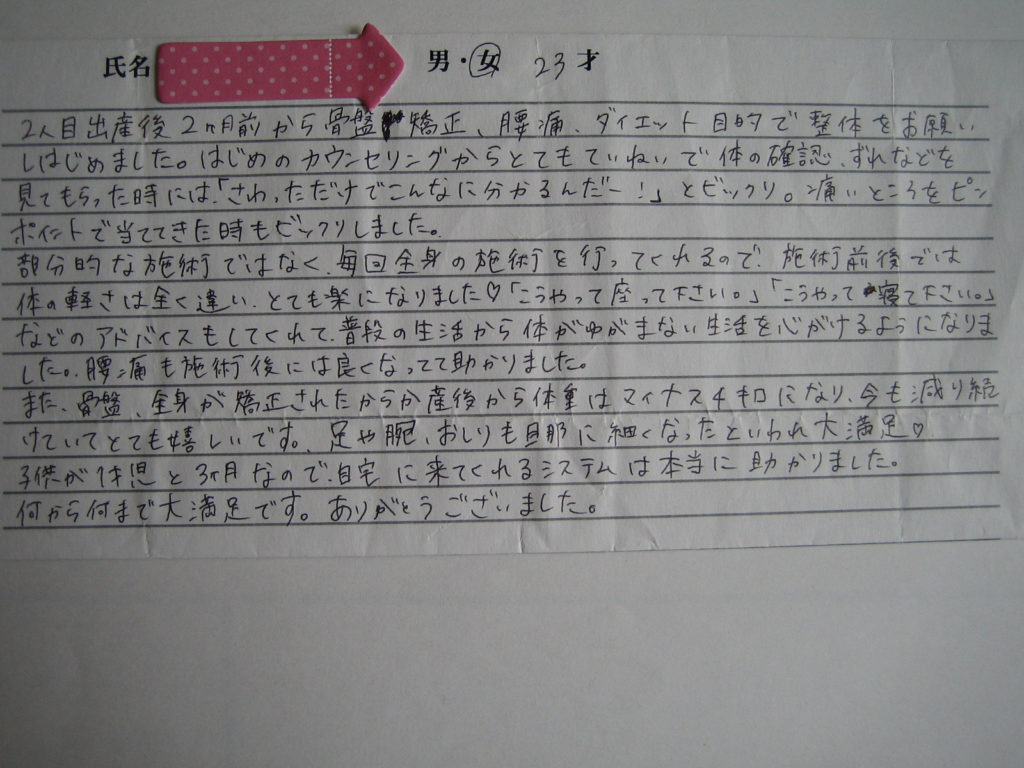 氏名 男・女 23才
2人目出産後2ヶ月前から骨盤矯正、腰痛、ダイエット目的で整体をお願い
しはじめました。はじめのカウンセリングからとてもていねいで体の確認、ずれなどを
見てもらった時には「さわっただけでこんなに分かるんだー!」とビックリ。痛いところをピン
ポイントで当ててきた時もビックリしました。
部分的な施術ではなく、毎回全身の施術を行ってくれるので、施術前後では
体の軽さは全く違い、とても楽になりました♡「こうやって座って下さい。」「こうやって寝て下さい。」
などのアドバイスもしてくれて、普段の生活から体がゆがまない生活を心がけるようになりま
した。腰痛も施術後には良くなってて助かりました。
また、骨盤、全身が矯正されたからか産後から体重はマイナス4キロになり、今も減り続
けていてとても嬉しいです。足や腕、おしりも旦那に細くなったといわれ大満足♡
子供が1才児と3ヶ月なので、自宅に来てくれるシステムは本当に助かりました。
何から何まで大満足です。ありがとうございました。